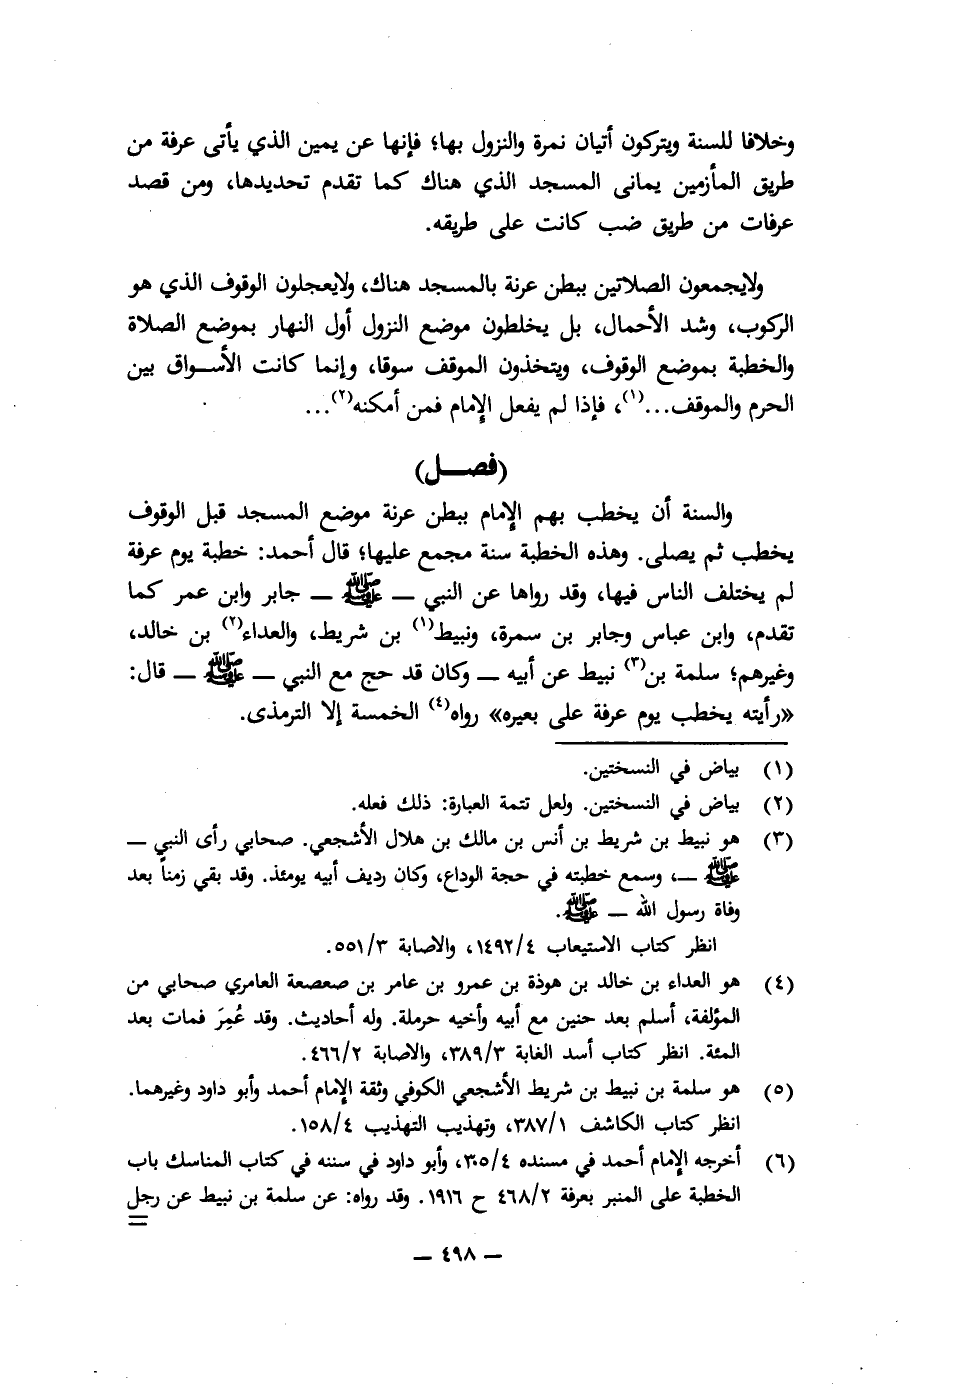 وخلافا للسنة ويتركون أتيان نمرة والنزول بها؛ فإنها عن يمين الذي يأتى عرفة من
طريق المأزمين يمانى المسجد الذي هناك كما تقدم تحديدها، ومن قصد
عرفات من طريق ضب كانت على طريقه.
ولايجمعون الصلاتين ببطن عرنة بالمسجد هناك، ولايعجلون الوقوف الذي هو
الركوب، وشد الأحمال، بل يخلطون موضع النزول أول النهار بموضع الصلاة
والخطبة بموضع الوقوف، ويتخذون الموقف سوقا، وإنما كانت الأسـواق بين
الحرم والموقف...(١)، فإذا لم يفعل الإمام فمن أمكنه(٢)...
(فصـــل)
والسنة أن يخطب بهم الإمام ببطن عرنة موضع المسجد قبل الوقوف
يخطب ثم يصلى. وهذه الخطبة سنة مجمع عليها؛ قال أحمد: خطبة يوم عرفة
لم يختلف الناس فيها، وقد رواها عن النبي ــ ﷺ ــ جابر وابن عمر كما
تقدم، وابن عباس وجابر بن سمرة، ونبيط(١) بن شريط، والعداء(٢) بن خالد،
وغيرهم؛ سلمة بن(٣) نبيط عن أبيه ــ وكان قد حج مع النبي ــ ﷺ ــ قال:
«رأيته يخطب يوم عرفة على بعيره» رواه(٤) الخمسة إلا الترمذى.
(١) بياض في النسختين.
(٢) بياض في النسختين. ولعل تتمة العبارة: ذلك فعله.
(٣) هو نبيط بن شريط بن أنس بن مالك بن هلال الأشجعي. صحابي رأى النبي ــ
ﷺ ــ، وسمع خطبته في حجة الوداع، وكان رديف أبيه يومئذ. وقد بقي زمناً بعد
وفاة رسول الله ــ ﷺ.
انظر كتاب الاستيعاب ١٤٩٢/٤، والاصابة ٥٥١/٣.
(٤) هو العداء بن خالد بن هوذة بن عمرو بن عامر بن صعصعة العامري صحابي من
المؤلفة، أسلم بعد حنين مع أبيه وأخيه حرملة. وله أحاديث. وقد عُمِرَ فمات بعد
المئة. انظر كتاب أسد الغابة ٣٨٩/٣، والاصابة ٤٦٦/٢.
(٥) هو سلمة بن نبيط بن شريط الأشجعي الكوفي وثقة الإمام أحمد وأبو داود وغيرهما.
انظر كتاب الكاشف ٣٨٧/١، وتهذيب التهذيب ١٥٨/٤.
(٦) أخرجه الإمام أحمد في مسنده ٣٠٥/٤، وأبو داود في سننه في كتاب المناسك باب
الخطبة على المنبر بعرفة ٤٦٨/٢ ح ١٩١٦. وقد رواه: عن سلمة بن نبيط عن رجل
=
ــ ٤٩٨ ــ